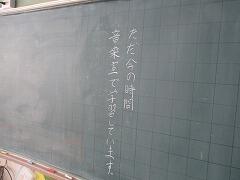 ただ今の時間
音楽室で学習しています。